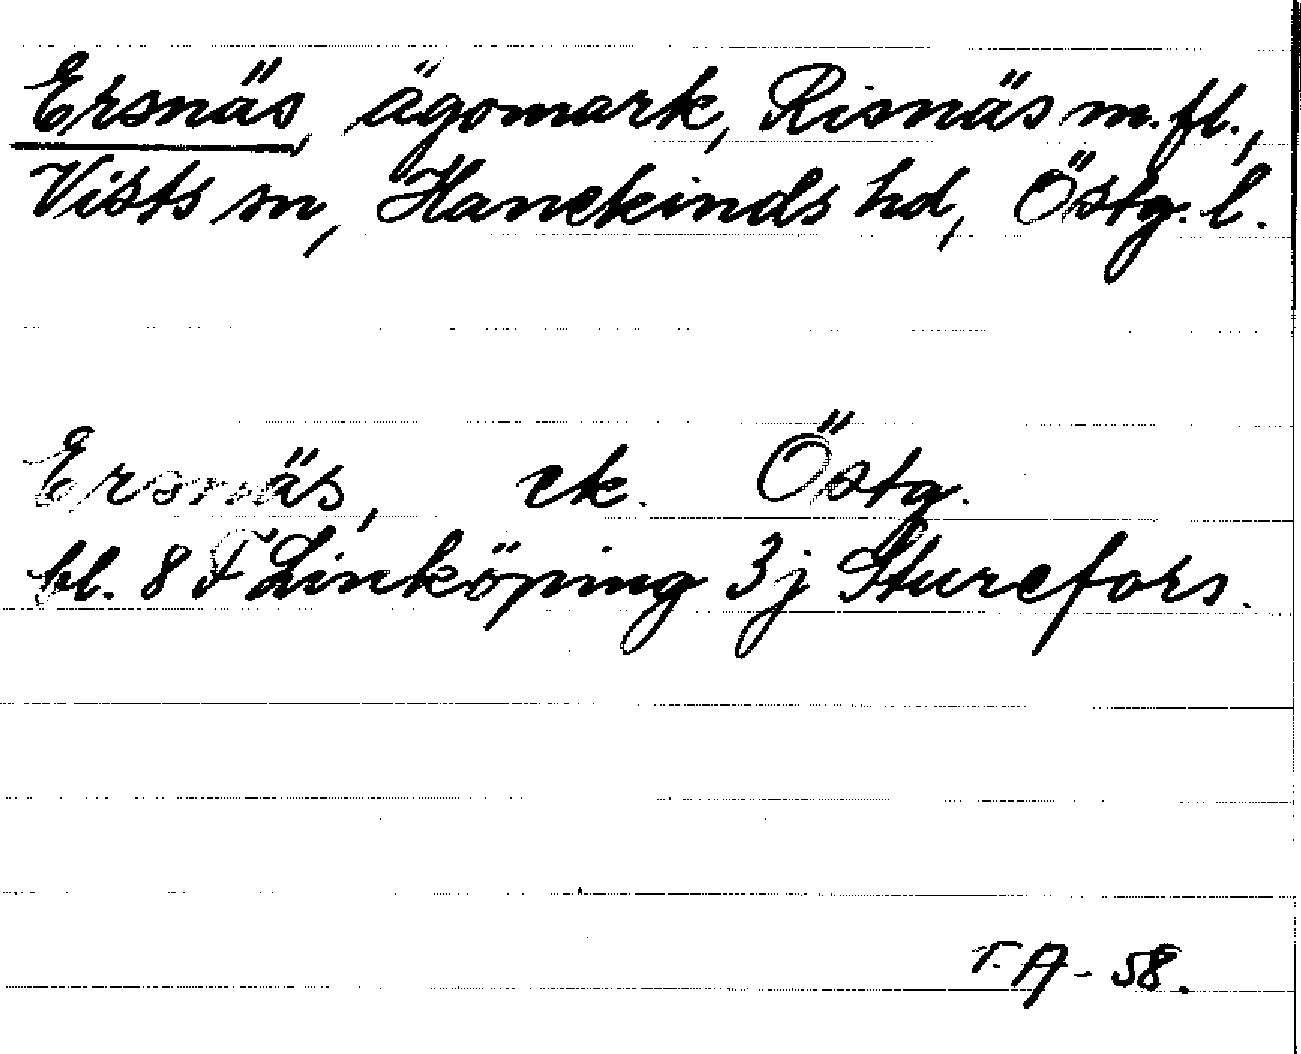 Ersnäs, ägomark, Risnäs m.fl.,
Vists sn, Hanekinds hd, Östg. l.
Ersnäs, ek. Östg.
bl. 8 F Linköping 3j Sturefors.
T. A - 58.